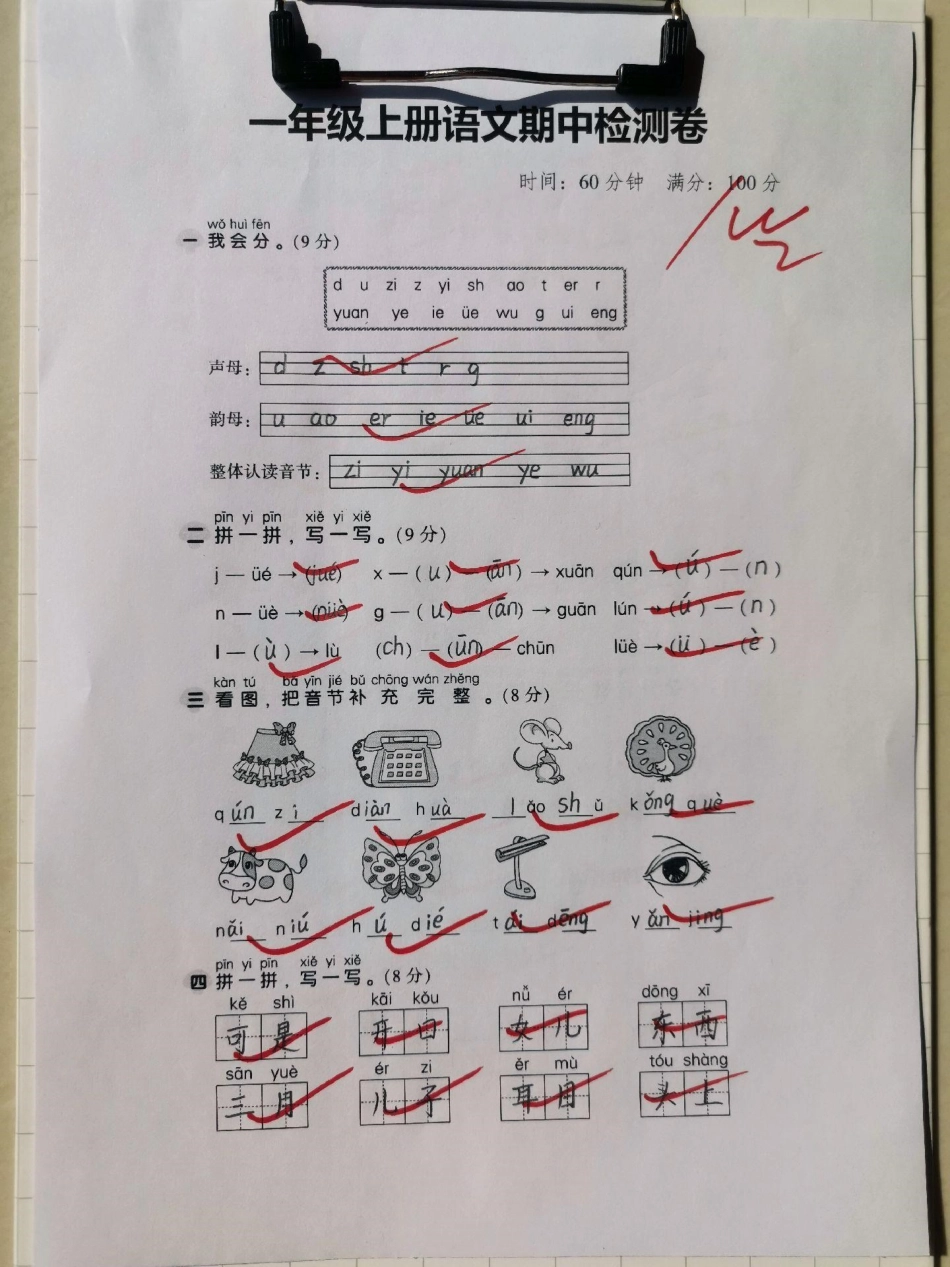 一年级上册语文期中检测卷
时间：60分钟 满分：100分
wǒ huì fēn
一 我会分。(9分)
d u zi z yi sh ao t er r
yuan ye ie üe wu g ui eng
声母： d z sh t r g
韵母： u ao er ie üe ui eng
整体认读音节： zi yi yuan ye wu
pīn yi pīn xiě yi xiě
二 拼一拼，写一写。(9分)
j — üé → (jué) x — (u) — (ān) → xuān qún → (ú) — (n)
n — üè → (nüè) g — (u) — (ān) → guān lún → (ú) — (n)
l — (ù) → lù (ch) — (ūn) — chūn lüè → (ü) — (è)
kàn tú bǎ yīn jié bǔ chōng wán zhěng
三 看图，把音节补充完整。(8分)
qún zi diàn huà lǎo shǔ kǒng què
nǎi niú hú dié tái dēng yǎn jing
pīn yi pīn xiě yi xiě
四 拼一拼，写一写。(8分)
kě shì kāi kǒu nǚ ér dōng xī
可是 开口 女儿 东西
sān yuè ér zi ěr mù tóu shàng
三月 儿子 耳目 头上